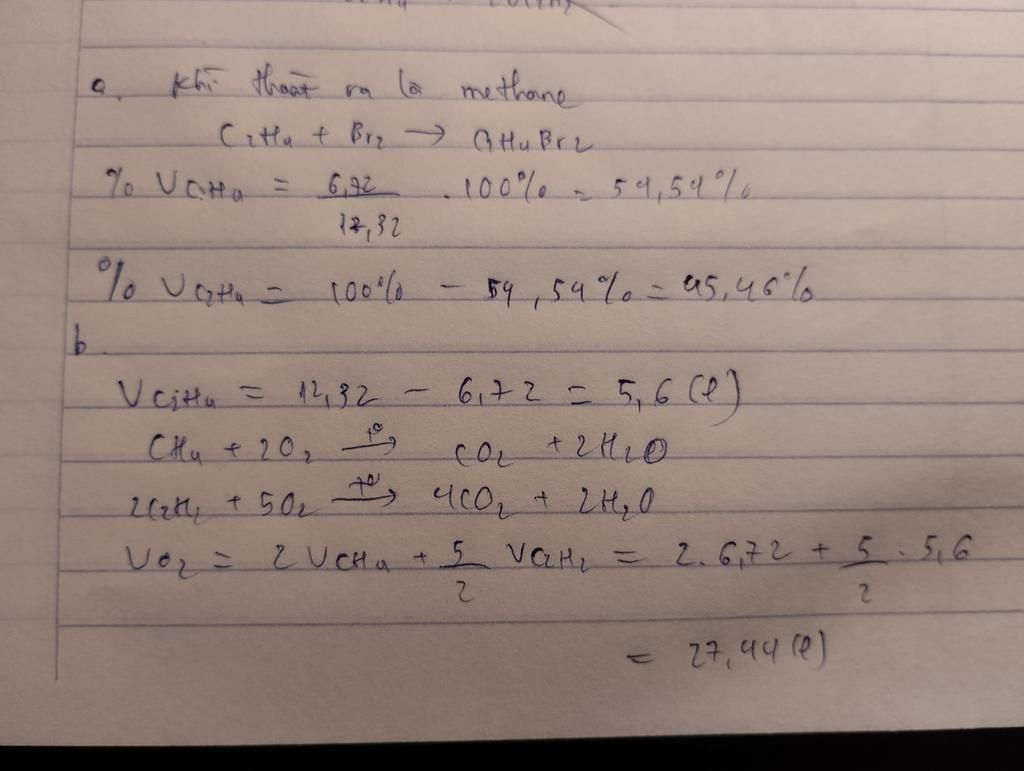 a. Khí thoát ra là methane
C2H4 + Br2 → C2H4Br2
% VCH4 = 6,72/12,32 . 100% = 54,54%
% VC2H4 = 100% - 54,54% = 45,46%
b.
VC2H4 = 12,32 - 6,72 = 5,6 (l)
CH4 + 2O2 —t°→ CO2 + 2H2O
2C2H2 + 5O2 —t°→ 4CO2 + 2H2O
VO2 = 2 VCH4 + 5/2 VC2H2 = 2. 6,72 + 5/2 . 5,6
= 27,44 (l)